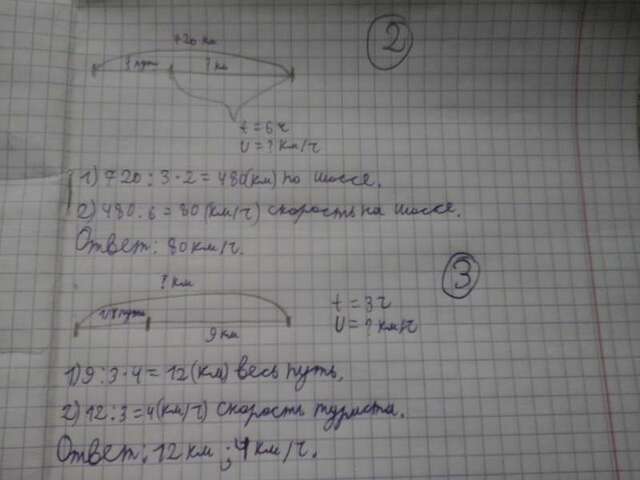 2
720 км
? км
t = 6 ч
V = ? км/ч
1) 720 : 3 · 2 = 480 (км) по шоссе.
2) 480 : 6 = 80 (км/ч) скорость на шоссе.
Ответ: 80 км/ч.
3
? км
1/4 пути
9 км
t = 3 ч
V = ? км/ч
1) 9 : 3 · 4 = 12 (км) весь путь.
2) 12 : 3 = 4 (км/ч) скорость туриста.
Ответ: 12 км ; 4 км/ч.